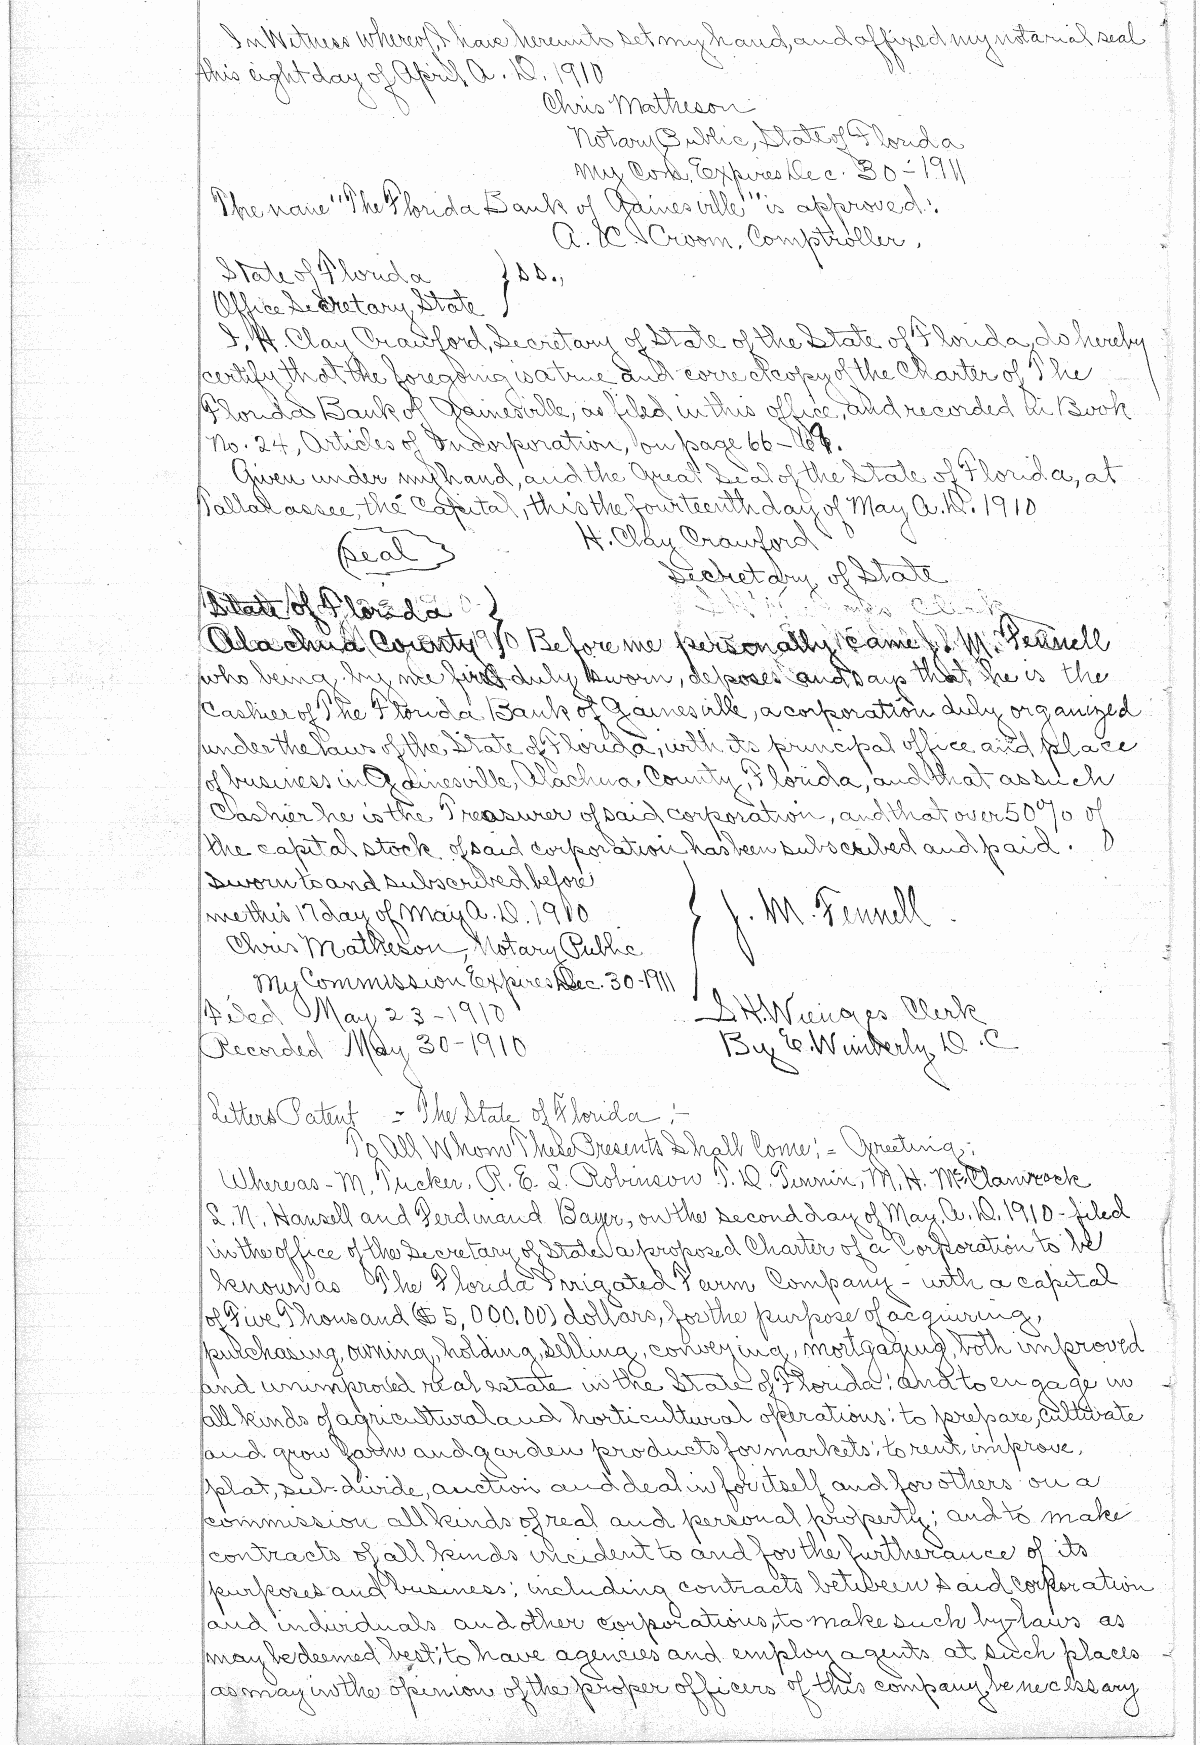 In Witness whereof, I have hereunto set my hand, and affixed my notarial seal
this eight day of April, A. D. 1910
Chris Matheson
Notary Public, State of Florida
My Com. Expires Dec. 30-1911
The name "The Florida Bank of Gainesville" is approved:
A. C. Croom, Comptroller.
State of Florida } ss.,
Office Secretary State
I, H. Clay Crawford, Secretary of State of the State of Florida, do hereby
certify that the foregoing is a true and correct copy of the Charter of The
Florida Bank of Gainesville, as filed in this office, and recorded in Book
No. 24, Articles of Incorporation, on page 66-69.
Given under my hand, and the Great Seal of the State of Florida, at
Tallahassee, the Capital, this the fourteenth day of May A. D. 1910
H. Clay Crawford
Seal
Secretary of State
State of Florida }
Alachua County } Before me personally came J. M. Fennell
who being by me first duly sworn, deposes and says that he is the
Cashier of The Florida Bank of Gainesville, a corporation duly organized
under the laws of the State of Florida, with its principal office and place
of business in Gainesville, Alachua County, Florida, and that as such
Cashier he is the Treasurer of said corporation, and that over 50% of
the capital stock of said corporation has been subscribed and paid.
Sworn to and subscribed before
me this 17 day of May A. D. 1910 } J. M. Fennell.
Chris Matheson, Notary Public
My Commission Expires Dec. 30-1911
Filed May 23-1910 S. H. Wienges Clerk
Recorded May 30-1910 By E. Wimberly D. C
Letters Patent - The State of Florida:-
To All Whom These Presents Shall Come:- Greeting:
Whereas- M. Tucker, R. E. L. Robinson T. D. M. H. McClamrock
L. N. Hansell and Ferdinand Bayer, on the second day of May, A. D. 1910- filed
in the office of the Secretary of State a proposed Charter of a Corporation to be
known as The Florida Irrigated Farm Company- with a capital
of Five Thousand ($5,000.00) dollars, for the purpose of acquiring,
purchasing, owning, holding, selling, conveying, mortgaging, both improved
and unimproved real estate in the State of Florida: and to engage in
all kinds of agricultural and horticultural operations: to prepare, cultivate
and grow farm and garden products for markets; to rent, improve,
plat, sub-divide, auction and deal in for itself and for others on a
commission all kinds of real and personal property; and to make
contracts of all kinds incident to and for the furtherance of its
purposes and business; including contracts between said corporation
and individuals and other corporations, to make such by-laws as
may be deemed best; to have agencies and employ agents at such places
as may in the opinion of the proper officers of this company, be necessary